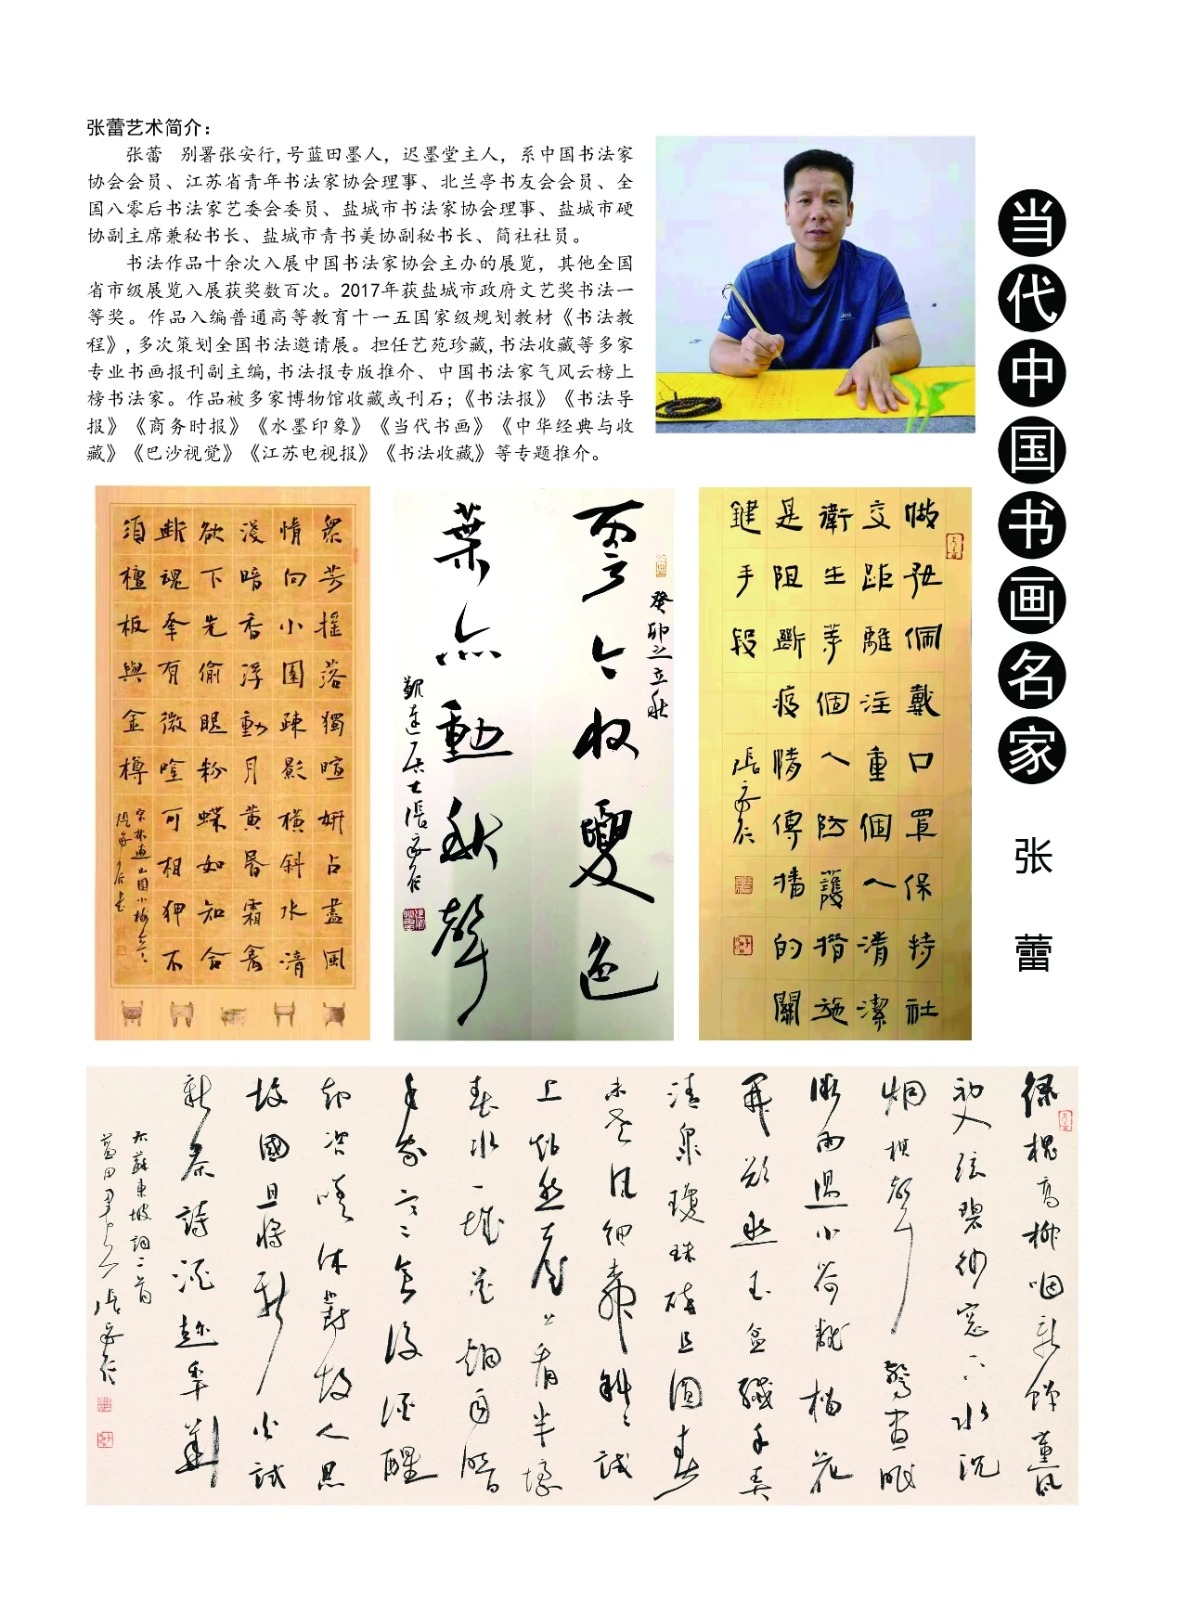 张蕾艺术简介：
张蕾　别署张安行，号蓝田墨人，迟墨堂主人，系中国书法家
协会会员、江苏省青年书法家协会理事、北兰亭书友会会员、全
国八零后书法家艺委会委员、盐城市书法家协会理事、盐城市硬
协副主席兼秘书长、盐城市青书美协副秘书长、简社社员。
书法作品十余次入展中国书法家协会主办的展览，其他全国
省市级展览入展获奖数百次。2017年获盐城市政府文艺奖书法一
等奖。作品入编普通高等教育十一五国家级规划教材《书法教
程》，多次策划全国书法邀请展。担任艺苑珍藏，书法收藏等多家
专业书画报刊副主编，书法报专版推介、中国书法家气风云榜上
榜书法家。作品被多家博物馆收藏或刊石；《书法报》《书法导
报》《商务时报》《水墨印象》《当代书画》《中华经典与收
藏》《巴沙视觉》《江苏电视报》《书法收藏》等专题推介。
当代中国书画名家
张蕾
眾芳搖落獨暄妍占盡風
情向小園疎影橫斜水清
淺暗香浮動月黃昏霜禽
欲下先偷眼粉蝶如知合
斷魂幸有微吟可相狎不
須檀板與金樽
宋林逋山園小梅
雲今收夏色
葉亦動秋聲
癸卯之立秋
做好佩戴口罩保持社
交距離注重個人清潔
衛生等個人防護措施
是阻斷疫情傳播的關
鍵手段
張安行
綠槐高柳咽新蟬薰風
初入弦碧紗窗下水沉
烟棋聲驚晝眠
微雨過小荷翻榴花
開欲然玉盆纖手弄
清泉瓊珠碎且圓春
未老風細柳斜斜試
上超然臺上看半壕
春水一城花烟雨暗
千家寒食後酒醒
却咨嗟休對故人思
故國且將新火試
新茶詩酒趁年華
右蘇東坡詞二首
藍田墨人張安行